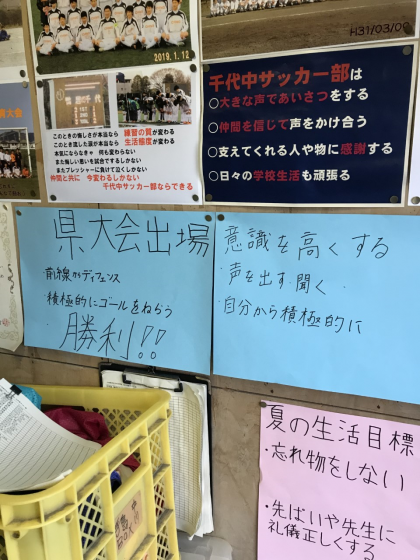 2019.1.12
H31/03/09
このときの悔しさが本当なら 練習の質が変わる
このとき流した涙が本当なら 生活態度が変わる
本気にならなきゃ 何も変わらない
また悔しい思いを試合するしかない
またプレッシャーに負けて泣くしかない
仲間と共に 今変わるしかない
千代中サッカー部ならできる
千代中サッカー部は
○大きな声であいさつをする
○仲間を信じて声をかけ合う
○支えてくれる人や物に感謝する
○日々の学校生活も頑張る
県大会出場
前線からディフェンス
積極的にゴールをねらう
勝利!!
意識を高くする
・声を出す、聞く
・自分から積極的に
夏の生活目標
・忘れ物をしない
・先ぱいや先生に
礼儀正しくする